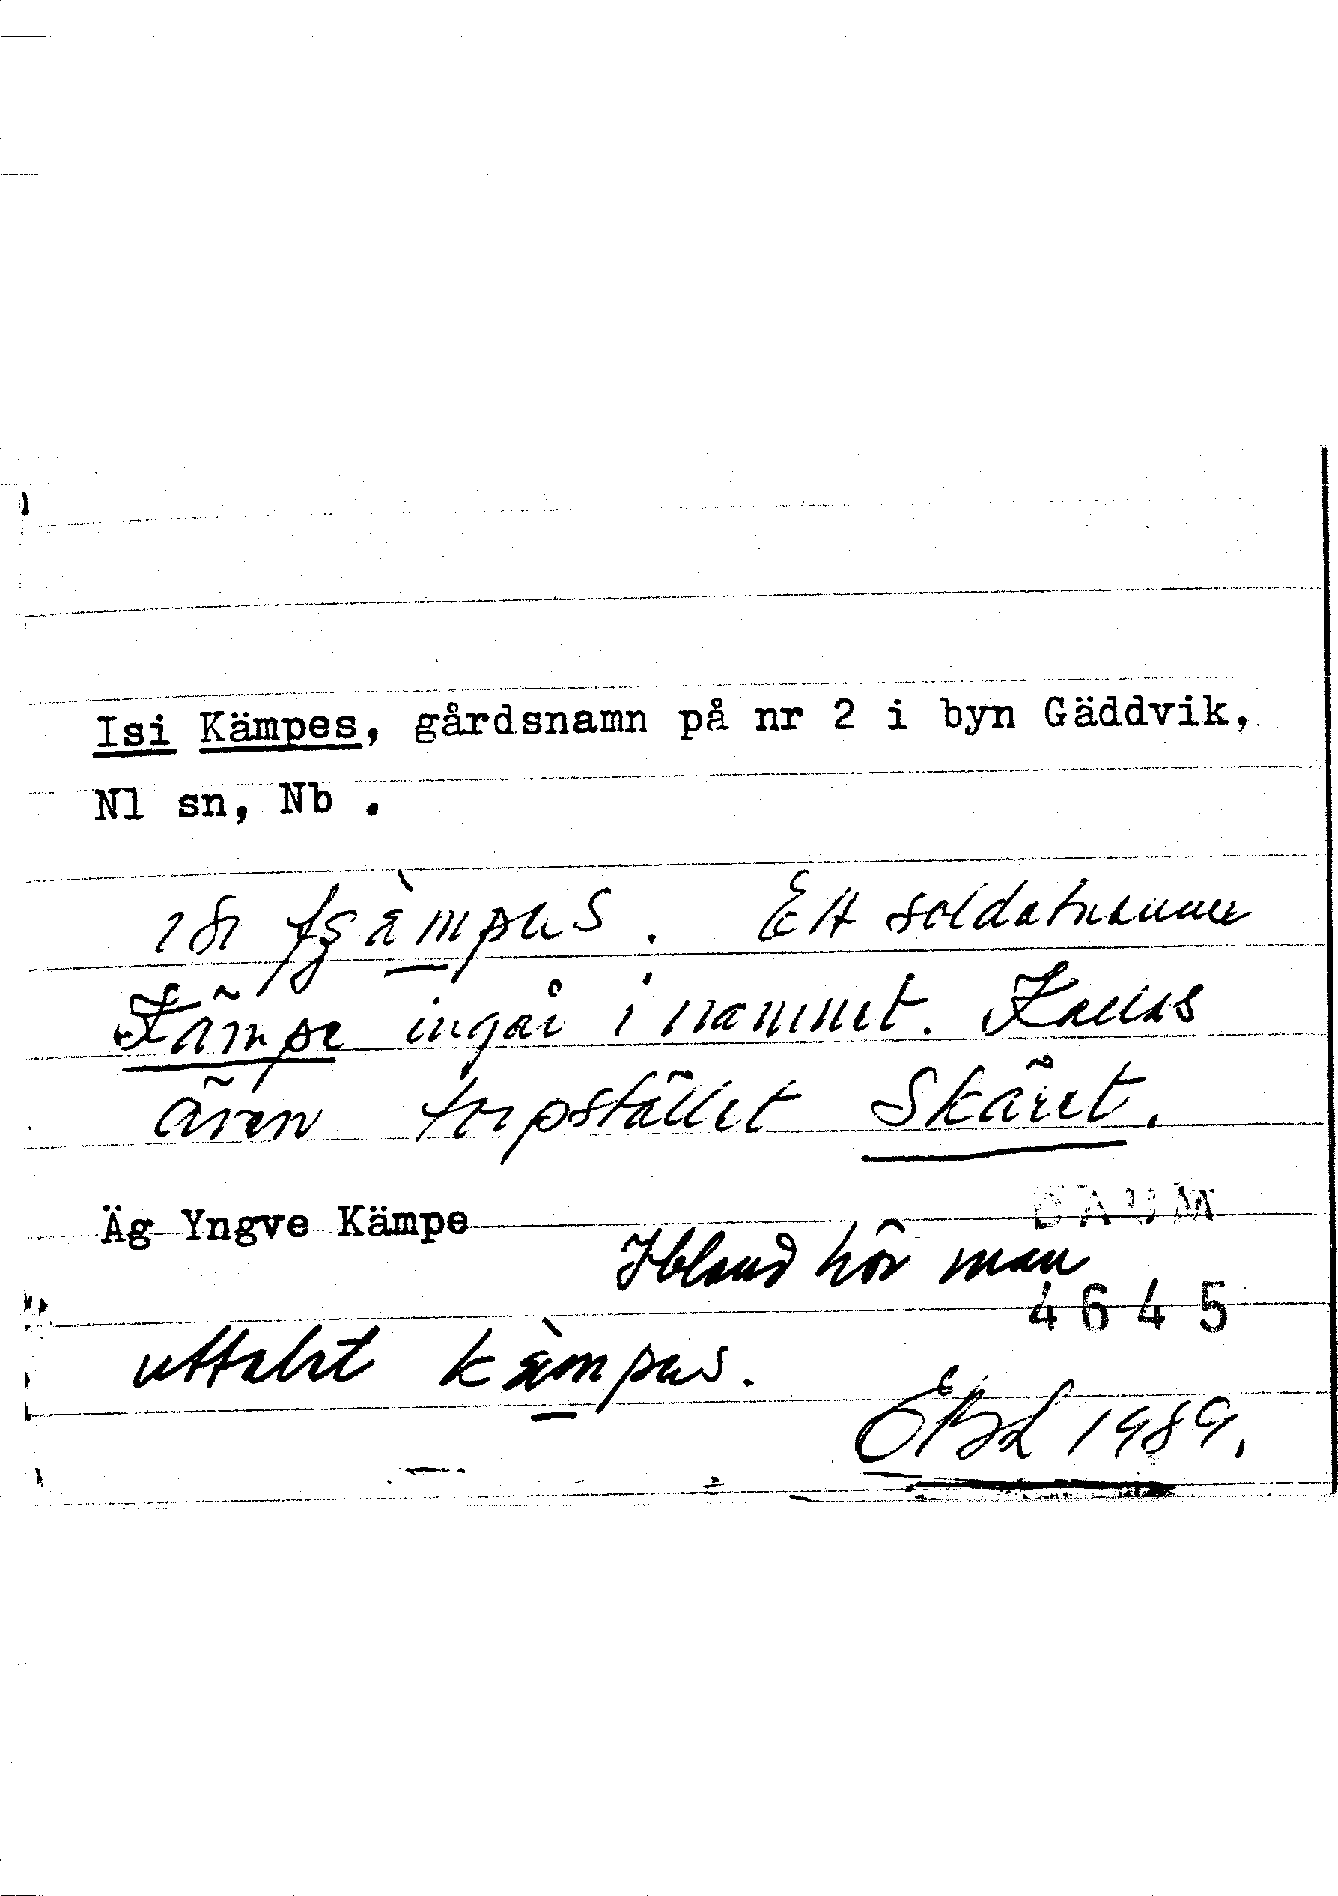 Isi Kämpes, gårdsnamn på nr 2 i byn Gäddvik,
Nl sn, Nb .
isi . Ett soldatnamn
Kämpe ingår i namnet. Kallas
även torpstället Skäret.
Äg Yngve Kämpe
DAUM
Ibland hör man
4645
uttalet kàmpas.
EBL 1989.